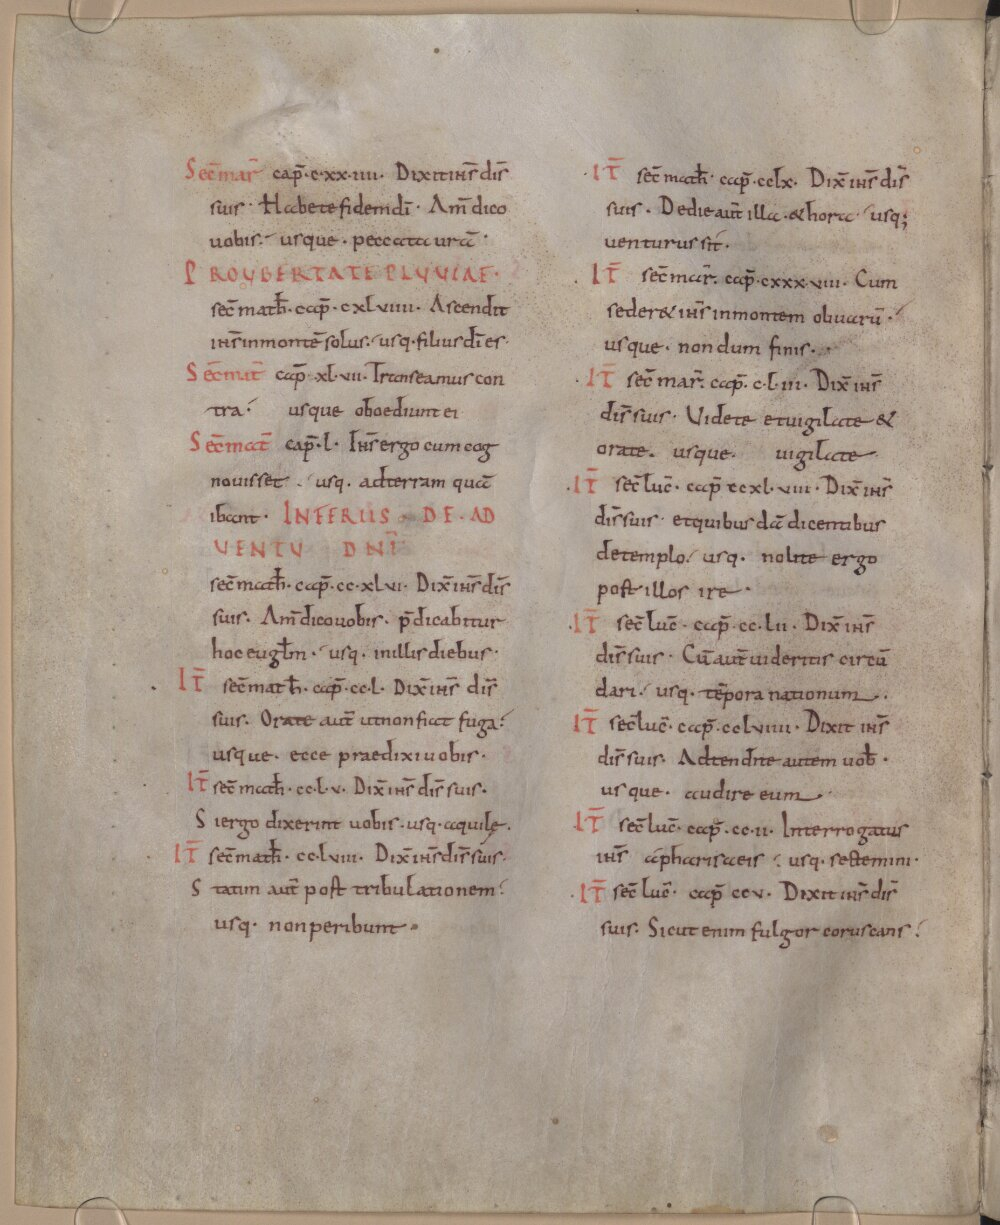 Sec̄ mar̄ cap̄ · c · xx · iiii · Dixit ih̄s dis̄
suis · Habete fidem dī · Am̄ dico
uobis · usque · peccata urā ·
PRO UBERTATE PLUUIAE ·
sec̄ math̄ · cap̄ · cxlviiii · Ascendit
ih̄s in monte᷈ solus · usq · filius dī es ·
Sec̄ mat̄ cap̄ · xl · vii · Transeamus con
tra · usque oboediunt ei
Sec̄ mat̄ cap̄ · l · Ih̄s ergo cum cog
nouisset · usq · ad terram quā
ibant · IN FERIIS · DE · AD
UENTU DNĪ
sec̄ math̄ · cap̄ · cc · xlvi · Dix̄ ih̄s dis̄
suis · Am̄ dico uobis · p̄dicabitur
hoc eugl̄m · usq · in illis diebus ·
IT̄ sec̄ math̄ · cap̄ · cc · l · Dix̄ ih̄s dis̄
suis · Orate aut̄ ut non fiat fuga ·
usque · ecce praedixi uobis ·
IT̄ sec̄ math̄ · cc · l · v · Dix̄ ih̄s dis̄ suis ·
Si ergo dixerint uobis · usq · aquilę ·
IT̄ sec̄ math̄ · cc · lviii · Dix̄ ih̄s dis̄ suis ·
Statim aut̄ post tribulationem ·
usq · non peribunt ·
IT̄ sec̄ math̄ · cap̄ · cclx · Dix̄ ih̄s dis̄
suis · De die aut̄ illa · & hora · usq;
uenturus sit ·
IT̄ sec̄ mar̄ · cap̄ · cxxx · viii · Cum
seder& ih̄s in montem oliuarū ·
usque · nondum finis ·
IT̄ sec̄ mar̄ · cap̄ · c · l · iii · Dix̄ ih̄s
dis̄ suis · Uidete et uigilate &
orate · usque · uigilate
IT̄ sec̄ luc̄ · cap̄ ccxl · viii · Dix̄ ih̄s
dis̄ suis · et quibusdā dicentibus
de templo · usq · nolite ergo
post illos ire ·
IT̄ sec̄ luc̄ · cap̄ · cc · lii · Dix̄ ih̄s
dis̄ suis · Cū aut̄ uideritis circū
dari · usq · tēpora nationum ·
IT̄ sec̄ luc̄ · cap̄ · cclviiii · Dixit ih̄s
dis̄ suis · Adtendite autem uob̄ ·
usque · audire eum ·
IT̄ sec̄ luc̄ · cap̄ · cc · ii · Interrogatus
ih̄s a pharisaeis · usq · set&emini ·
IT̄ sec̄ luc̄ · cap̄ ccv · Dixit ih̄s dis̄
suis · Sicut enim fulgor coruscans ·